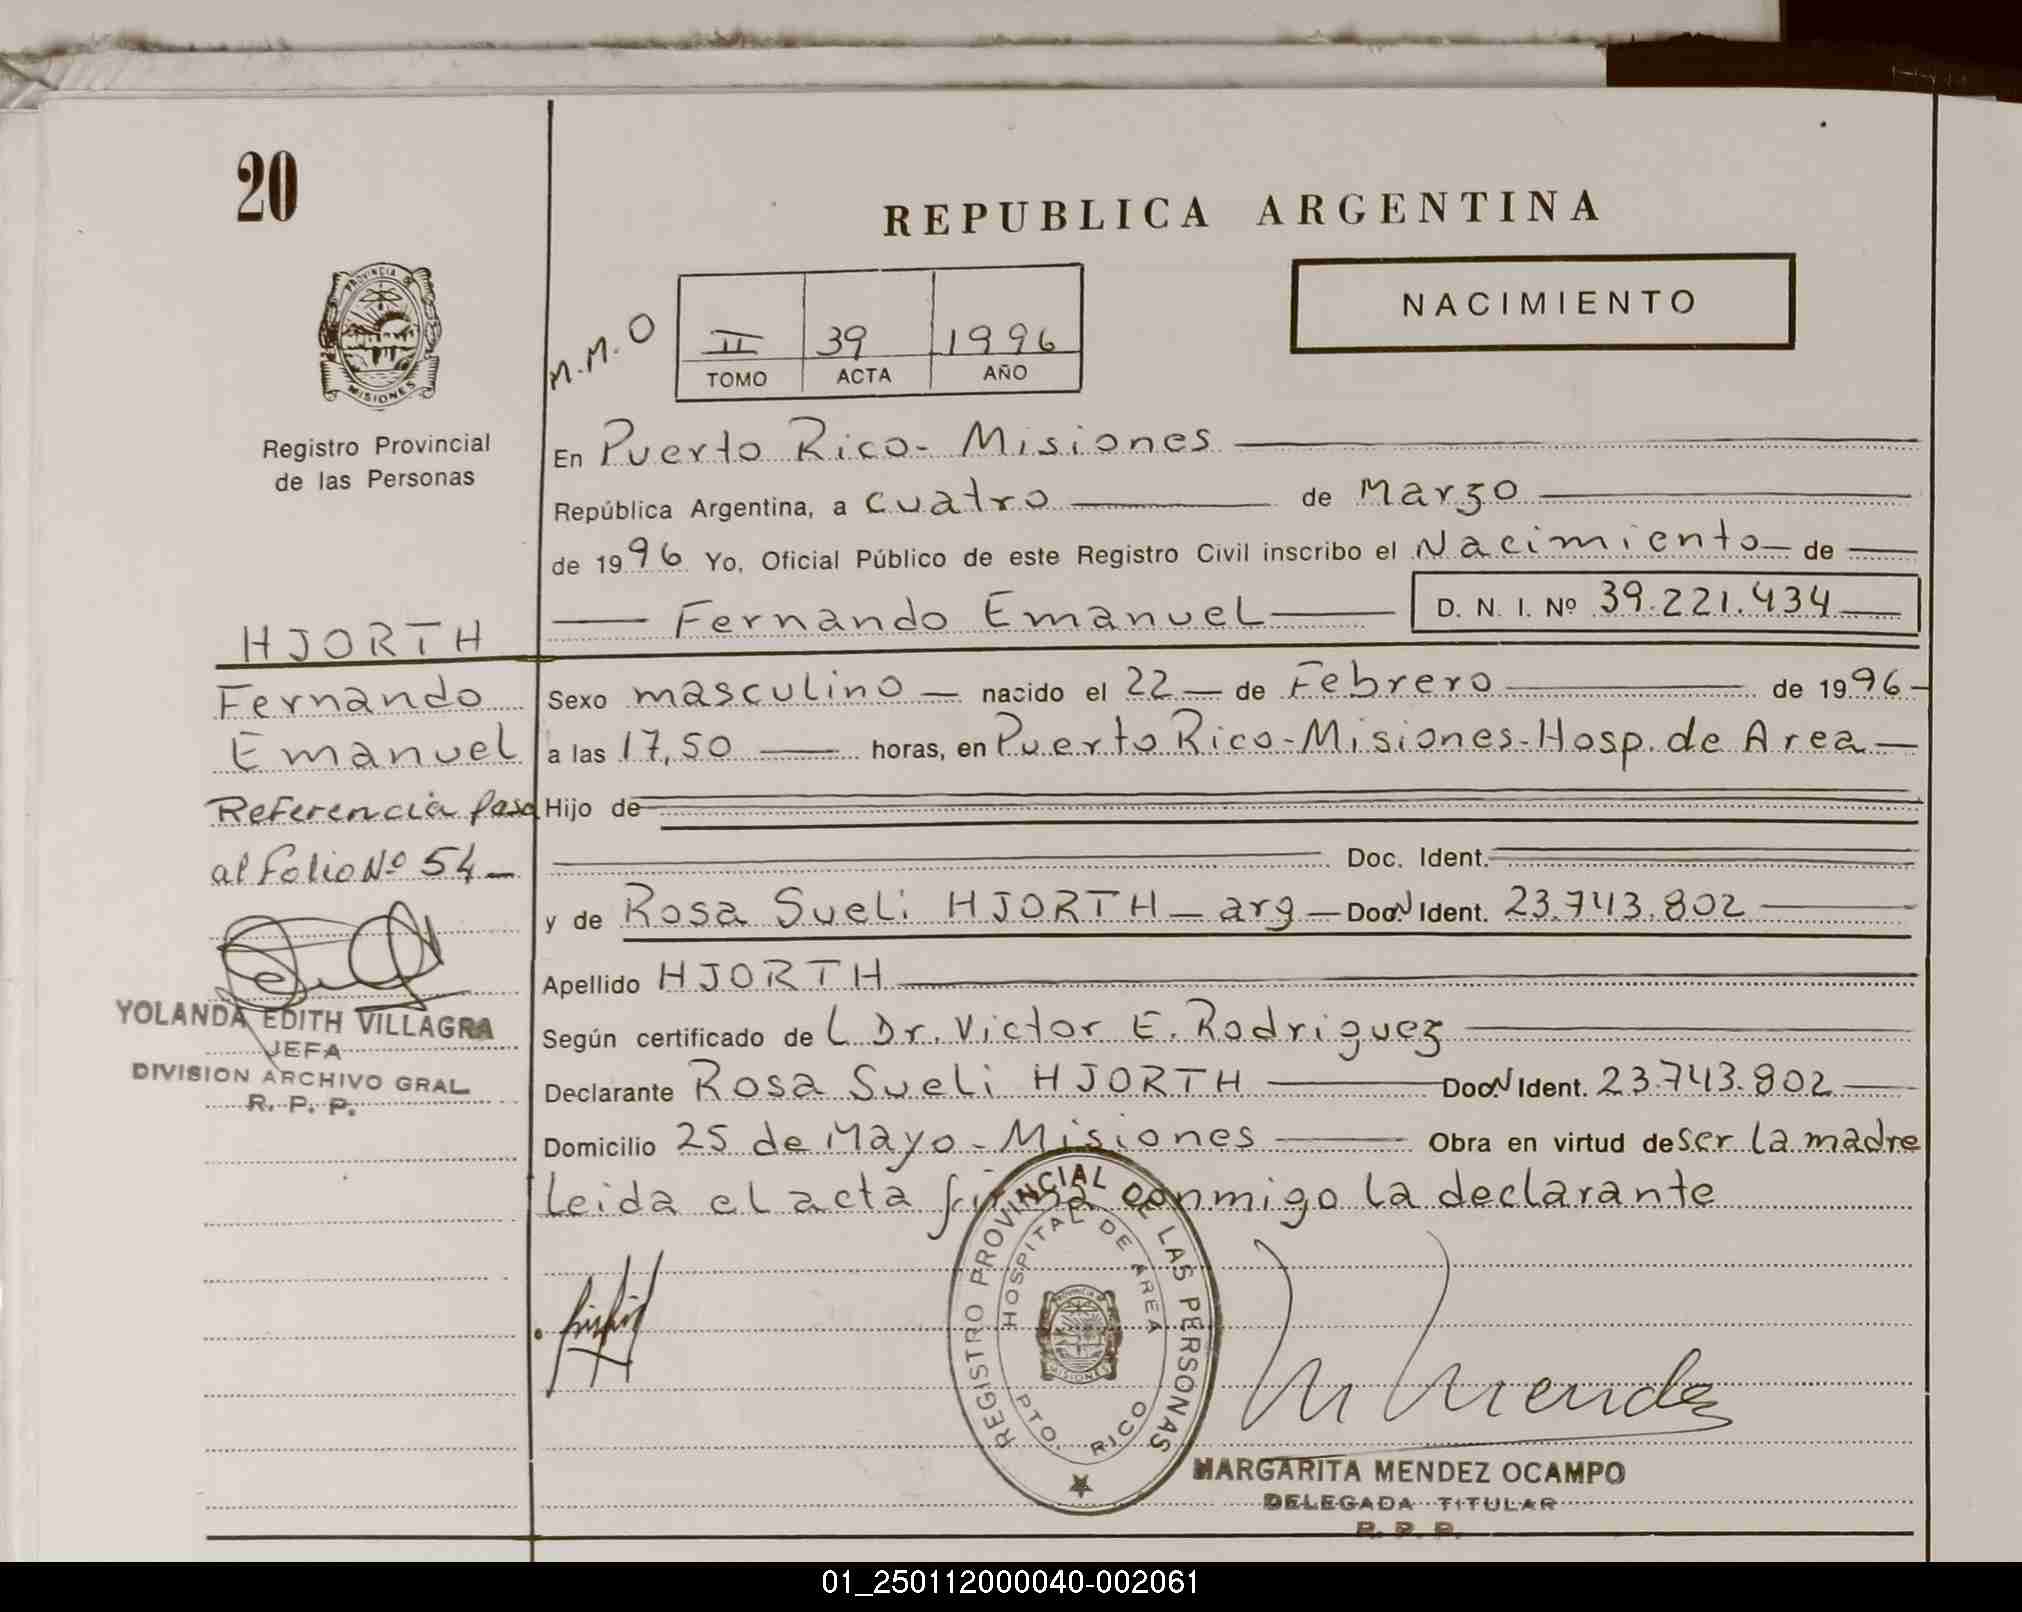 20
REPUBLICA ARGENTINA
NACIMIENTO
PROVINCIA DE
MISIONES
Registro Provincial
de las Personas
M.M.O
II 39 1996
TOMO ACTA AÑO
En Puerto Rico - Misiones
República Argentina, a cuatro de Marzo
de 1996 Yo, Oficial Público de este Registro Civil inscribo el Nacimiento de
Fernando Emanuel D. N. I. Nº 39.221.434
HJORTH
Fernando
Emanuel
Referencia pasa
al Folio Nº 54
YOLANDA EDITH VILLAGRA
JEFA
DIVISION ARCHIVO GRAL
R. P. P.
Sexo masculino nacido el 22 de Febrero de 1996
a las 17,50 horas, en Puerto Rico - Misiones - Hosp. de Area
Hijo de
Doc. Ident.
y de Rosa Sueli HJORTH - arg - Doc. N Ident. 23.743.802
Apellido HJORTH
Según certificado de L Dr. Victor E. Rodriguez
Declarante Rosa Sueli HJORTH Doc. N Ident. 23.743.802
Domicilio 25 de Mayo - Misiones Obra en virtud de ser la madre
Leida el acta firma conmigo la declarante
REGISTRO PROVINCIAL DE LAS PERSONAS
HOSPITAL DE AREA
PROVINCIA DE
MISIONES
PTO. RICO
M Mendez
MARGARITA MENDEZ OCAMPO
DELEGADA TITULAR
R. P. P.
01_250112000040-002061